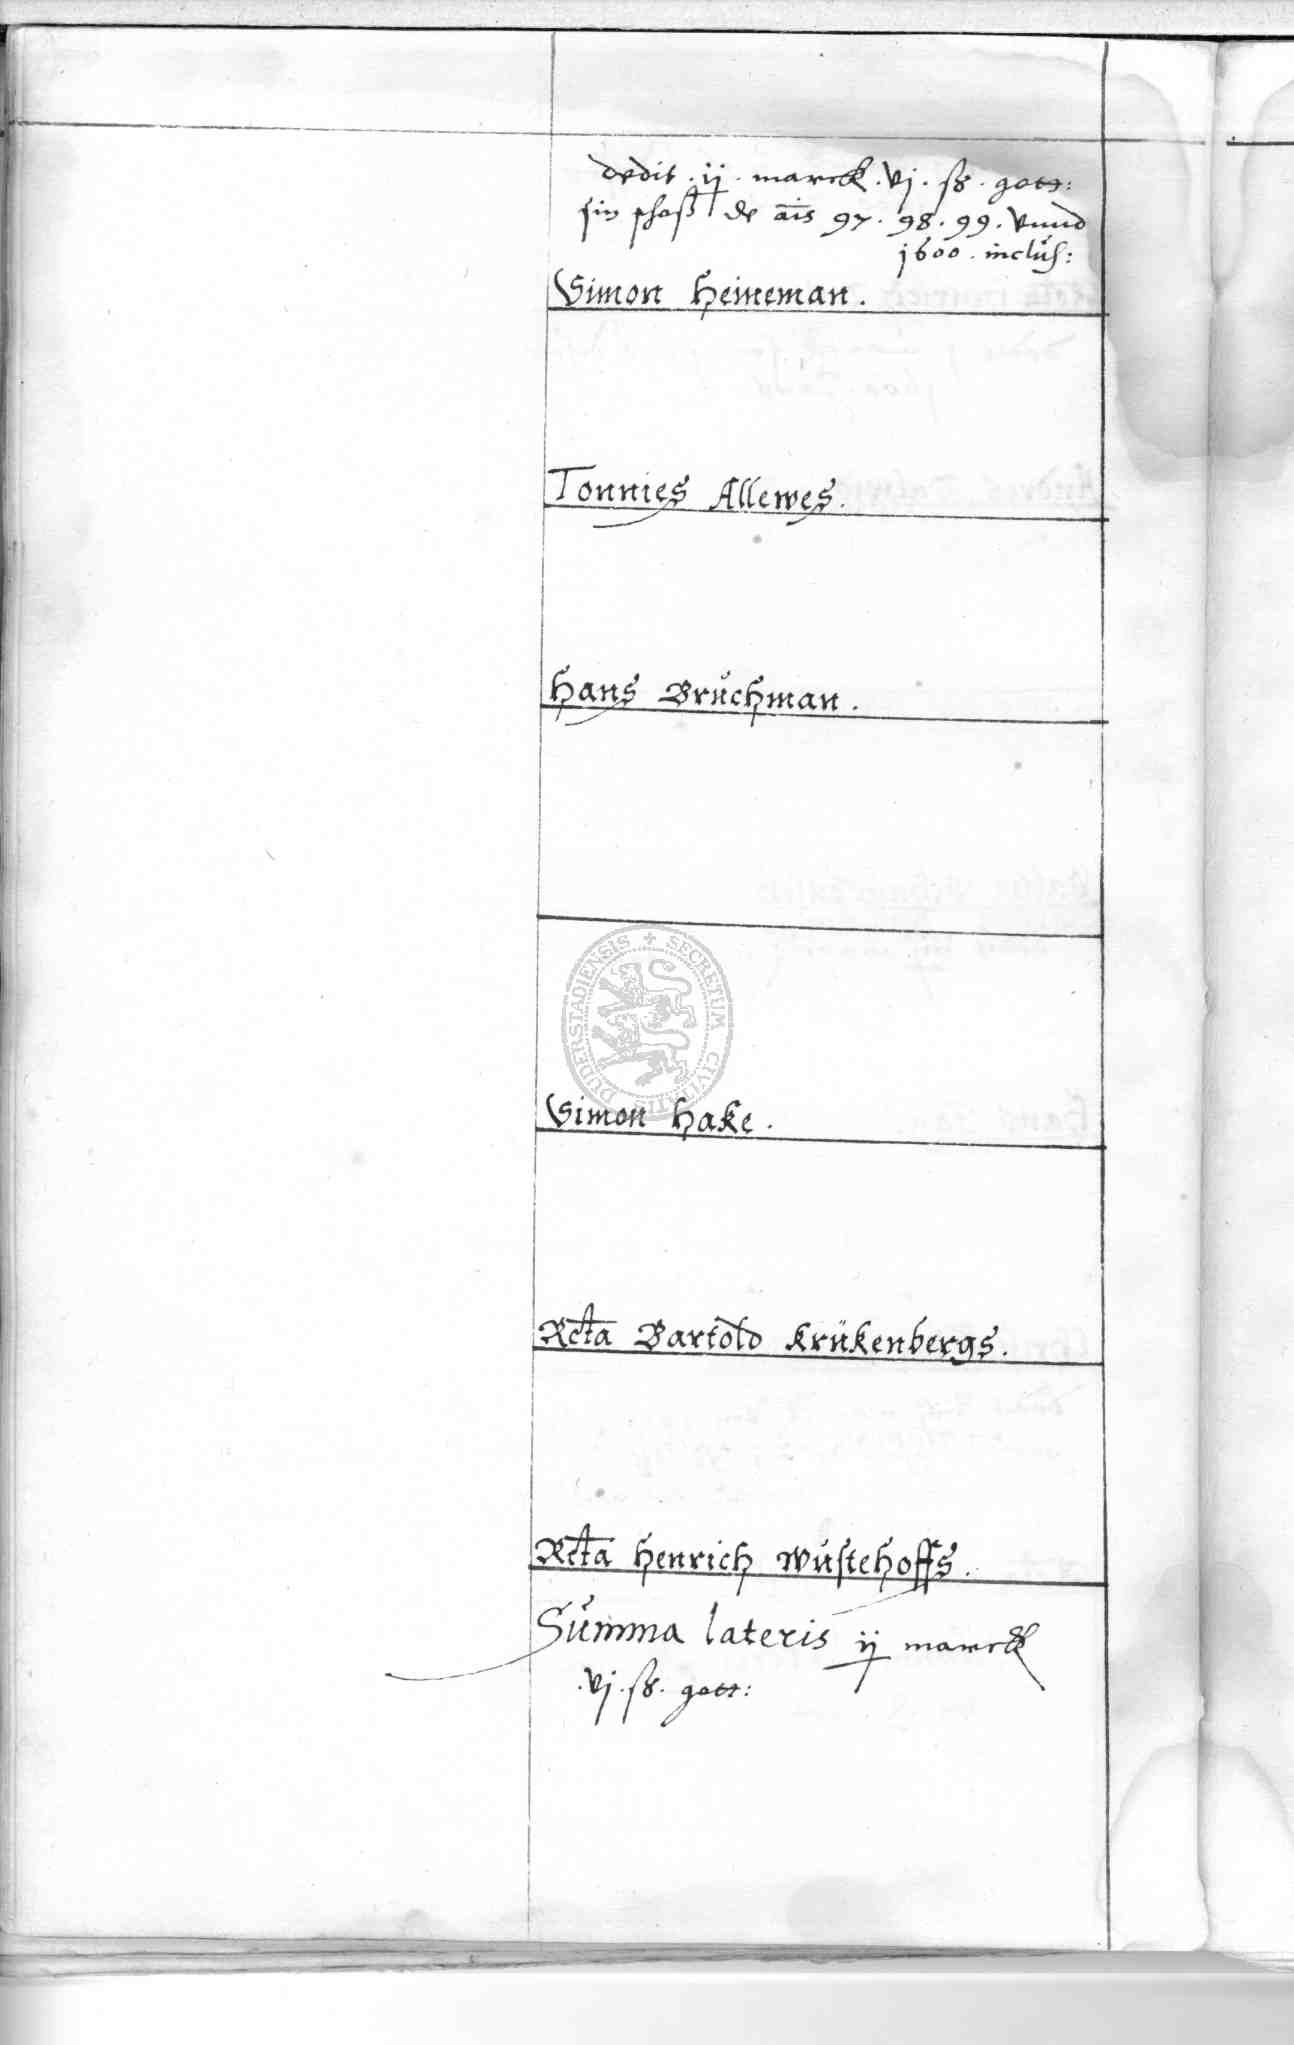 dedit . ij . marck . vj . ß . gott:
sin schoß de ais 97 . 98 . 99 . vnnd
1600 . inclus:
Simon Heineman .
Tonnies Allewes .
Hans Brůchman .
DUDERSTADIENSIS + SECRETUM CIVITATIS
Simon Hake .
Rcta Bartold Krükenbergs .
Rcta Henrich Wůstehoffs .
Sům̃a lateris ij marck
. vj . ß . gott: